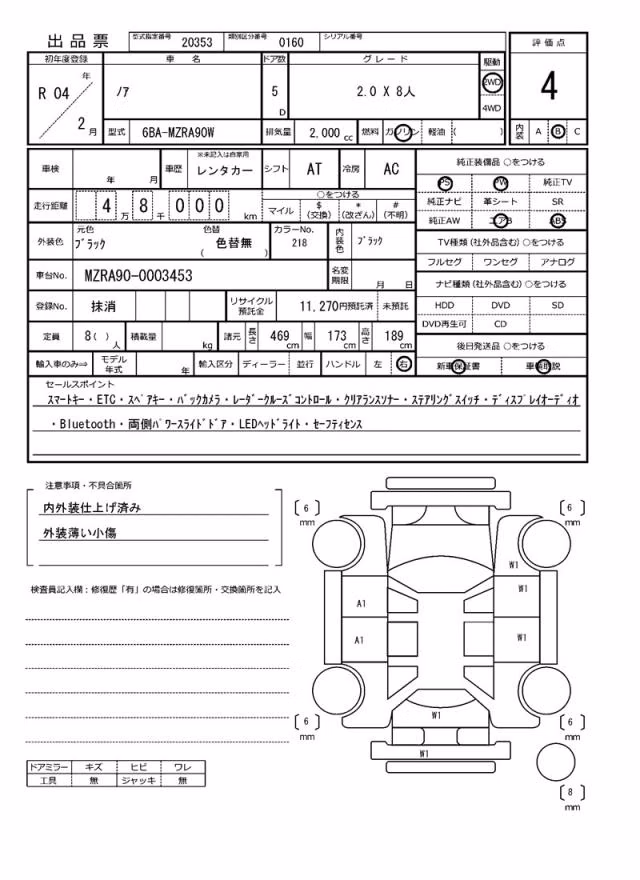 出品票 型式指定番号 20353 類別区分番号 0160 シリアル番号
評価点
4
内装 A B C
初年度登録 車名 ドア数 グレード 駆動
R 04 年 2 月 ノア 5 D 2.0 X 8人 2WD 4WD
型式 6BA-MZRA90W 排気量 2,000 cc 燃料 ガソリン 軽油 ( )
車検 年 月 車歴 ※未記入は自家用 レンタカー シフト AT 冷房 AC
走行距離 4 万 8 千 0 0 0 km
○をつける
マイル $ (交換) * (改ざん) # (不明)
外装色 元色 ブラック 色替 色替無 ( ) カラーNo. 218 内装色 ブラック
車台No. MZRA90-0003453 名変期限 月 日
登録No. 抹消 リサイクル預託金 11,270円預託済 未預託
定員 8( ) 人 積載量 kg 諸元 長さ 469 cm 幅 173 cm 高さ 189 cm
輸入車のみ⇒ モデル年式 年 輸入区分 ディーラー 並行 ハンドル 左 右
純正装備品 ○をつける
PS PW 純正TV
純正ナビ 革シート SR
純正AW エアB ABS
TV種類 (社外品含む) ○をつける
フルセグ ワンセグ アナログ
ナビ種類 (社外品含む) ○をつける
HDD DVD SD
DVD再生可 CD
後日発送品 ○をつける
新車保証書 車輌取説
セールスポイント
スマートキー・ETC・スペアキー・バックカメラ・レーダークルーズコントロール・クリアランスソナー・ステアリングスイッチ・ディスプレイオーディオ
・Bluetooth・両側パワースライドドア・LEDヘッドライト・セーフティセンス
注意事項・不具合箇所
内外装仕上げ済み
外装薄い小傷
検査員記入欄：修復歴「有」の場合は修復箇所・交換箇所を記入
ドアミラー キズ ヒビ ワレ
工具 無 ジャッキ 無
6 mm
6 mm
W1
A1 W1
A1 W1
W1
6 mm
6 mm
W1
8 mm